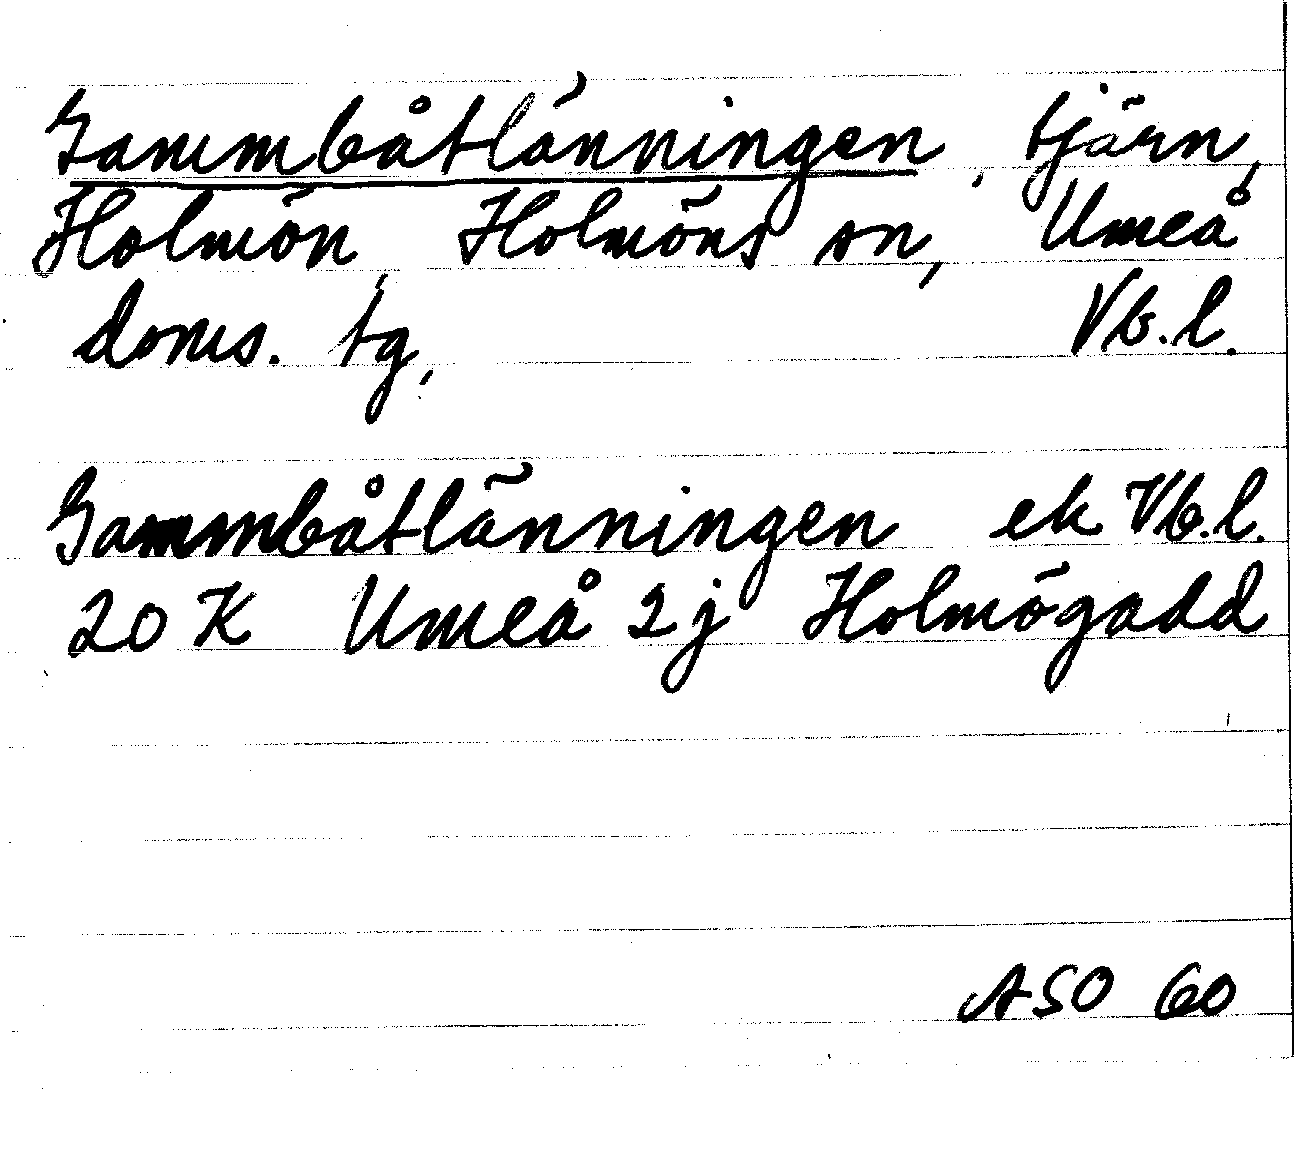 Gammbåtlänningen, tjärn,
Holmön, Holmöns sn, Umeå
doms. tg, Vb.l.
Gammbåtlänningen ek Vb.l.
20 K Umeå 2j Holmögadd
ASO 60